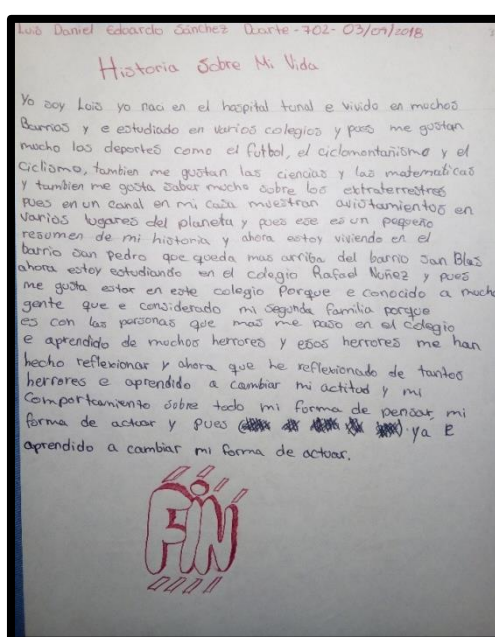 Luis Daniel Edoardo Sánchez Duarte - 702 - 03/09/2018
Historia Sobre Mi Vida
Yo soy Luis yo naci en el hospital tunal e vivido en muchos
Barrios y e estudiado en varios colegios y pues me gustan
mucho los deportes como el futbol, el ciclomontañismo y el
Ciclismo, tambien me gustan las ciencias y las matematicas
y tambien me gusta saber mucho sobre los extraterrestres
pues en un canal en mi casa muestran avistamientos en
varios lugares del planeta y pues ese es un pequeño
resumen de mi historia y ahora estoy viviendo en el
barrio san pedro que queda mas arriba del barrio San Blas
ahora estoy estudiando en el colegio Rafael Nuñez y pues
me gusta estar en este colegio Porque e conocido a mucha
gente que e considerado mi segunda familia porque
es con las personas que mas me paso en el Colegio
e aprendido de muchos herrores y esos herrores me han
hecho reflexionar y ahora que he reflexionado de tantos
herrores e aprendido a cambiar mi actitud y mi
Comportamiento sobre todo mi forma de pensar, mi
forma de actuar y pues ya E
aprendido a cambiar mi forma de actuar.
FIN